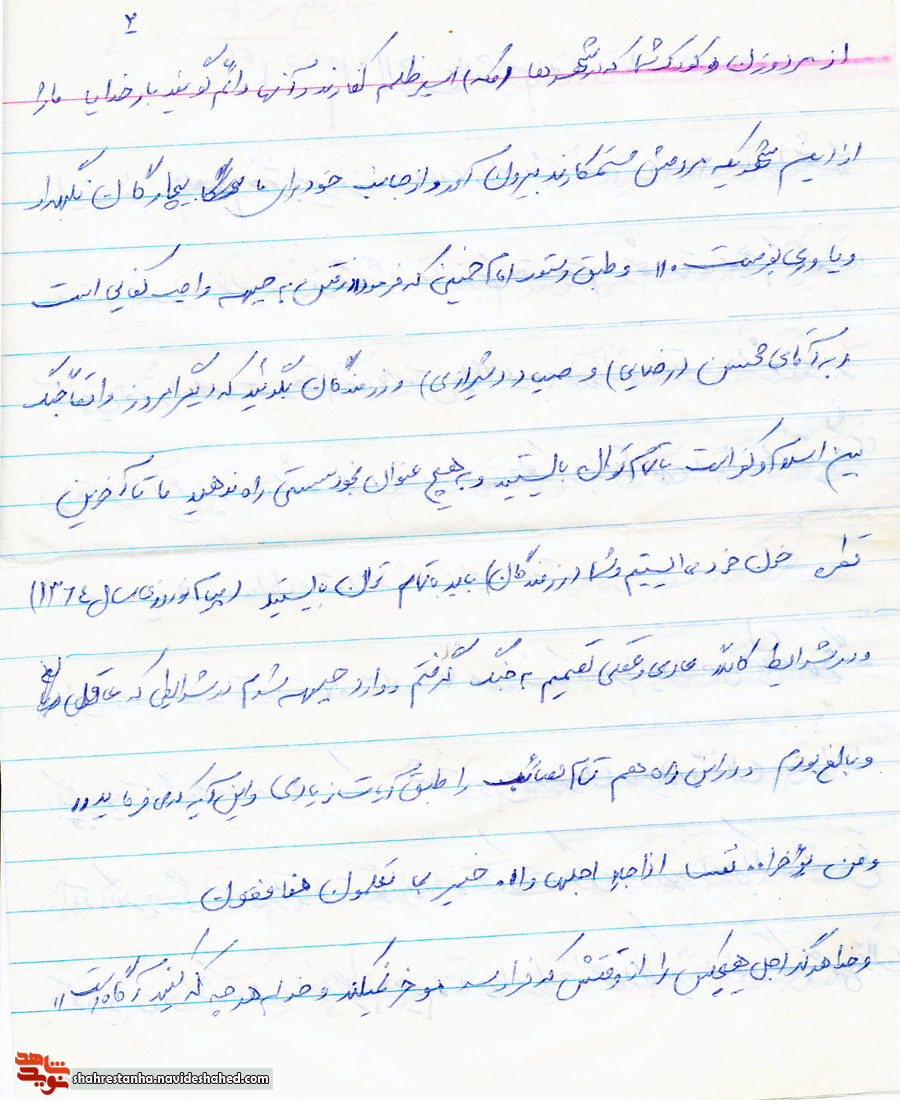 ۲
از مرد و زن و کودک شما که در شهرها (مکه) اسیر ظلم کفارند و آنها دائم گویند بار خدایا ما را
از این شهریکه مردمش ستمکارند بیرون آور و از جانب خود برای ما بیچارگان نگهدار
و یاوری بفرست.» و طبق دستور امام خمینی که فرمود «رفتن به جبهه واجب کفایی است
و به آقای محسن (رضایی) و صیاد (شیرازی) و رزمندگان بگوئید که دیگر امروز واقعاً جنگ
بین اسلام و کفر است با تمام توان بایستید و به هیچ عنوان بخود سستی راه ندهید ما تا آخرین
قطره خون خود می ایستیم و شما (رزمندگان) باید با تمام توان بایستید (پیام نوروزی سال ۱۳۶۴)
و در شرایط کاملاً عادی و عقلی تصمیم به جنگ گرفتم و وارد جبهه شدم در شرایطی که عاقل
و بالغ بودم و در این راه هم تمام مصائب را طبق آیات زیادی و این آیه که می فرماید «
ومن یؤخرا.. نفسا اذا جاء اجلها وا.. خبیر بما تعلمون منافقون
و خدا هرگز اجل هیچکس را از وقتش که فرا رسد مؤخر نمیکند و خدا به هر چه که کنید آگاه است»
شاهد
نوید
shahrestanha.navideshahed.com